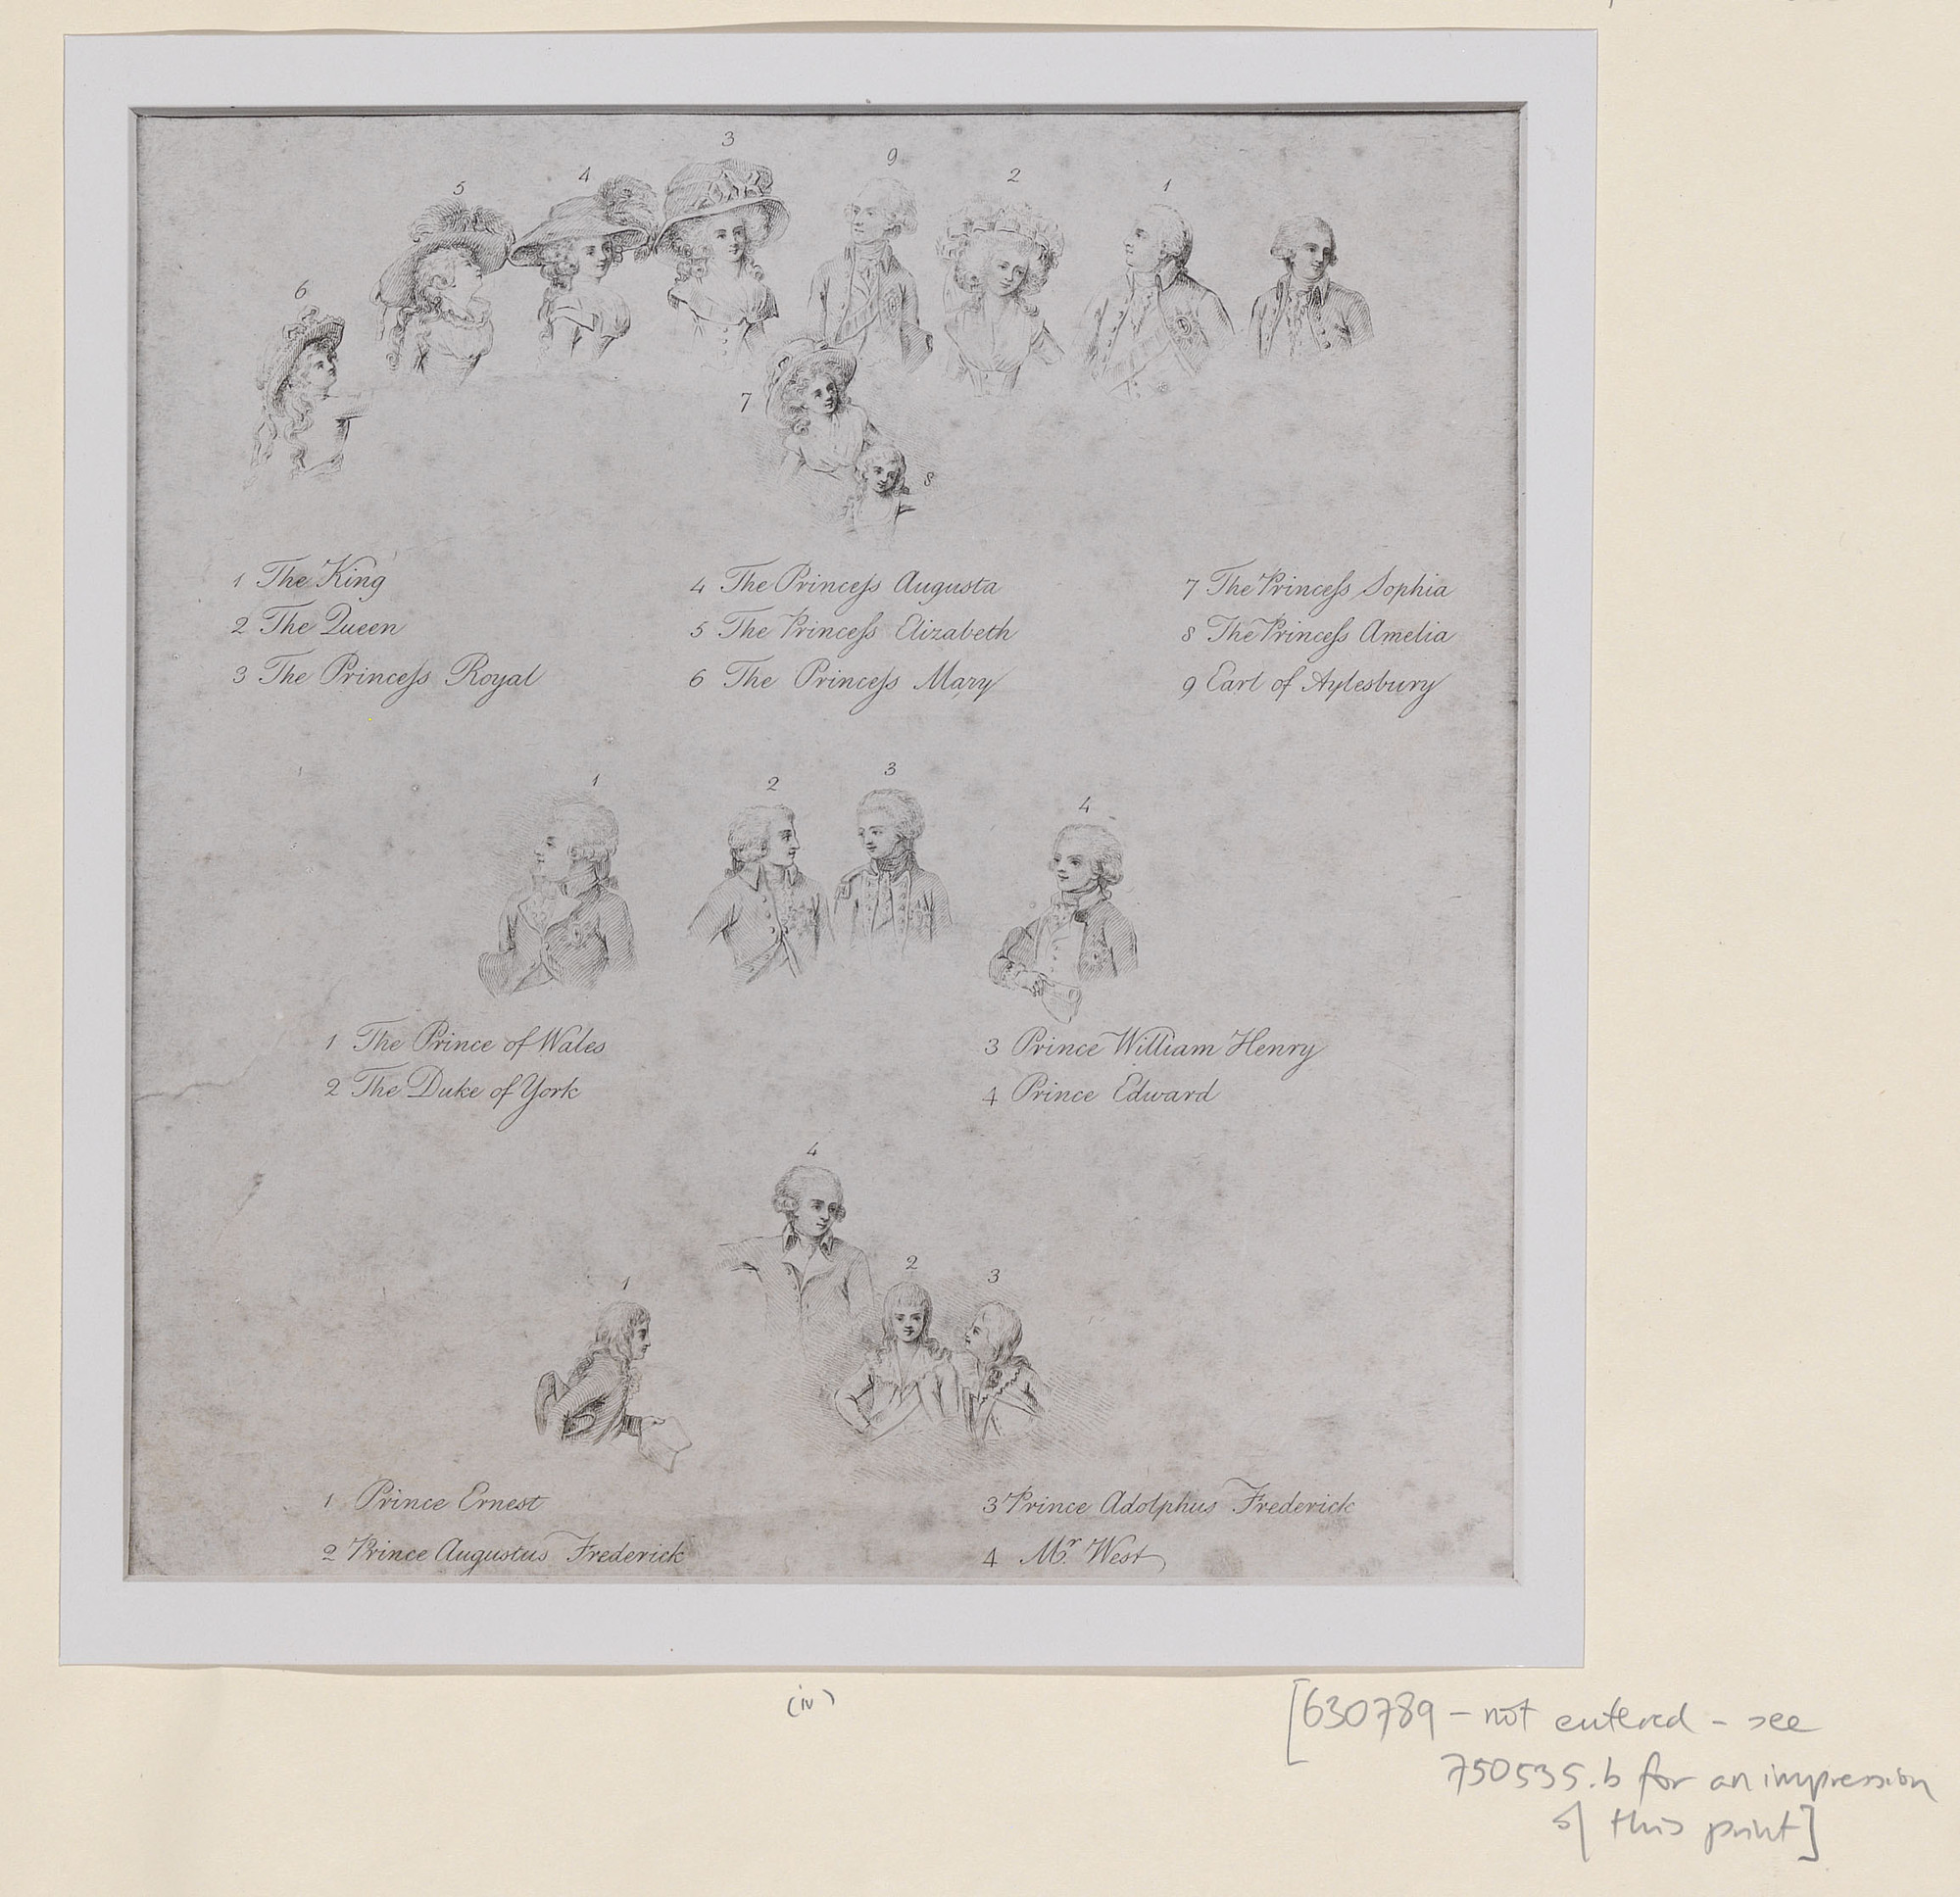 3
9
4
2
1
5
6
7
8
1 The King
2 The Queen
3 The Princeſs Royal
4 The Princeſs Augusta
5 The Princeſs Elizabeth
6 The Princeſs Mary
7 The Princeſs Sophia
8 The Princeſs Amelia
9 Earl of Aylesbury
1
2
3
4
1 The Prince of Wales
2 The Duke of York
3 Prince William Henry
4 Prince Edward
4
2
3
1
1 Prince Ernest
2 Prince Augustus Frederick
3 Prince Adolphus Frederick
4 Mr. West
(iv)
[630789 – not entered – see
750535.b for an impression
of this print]